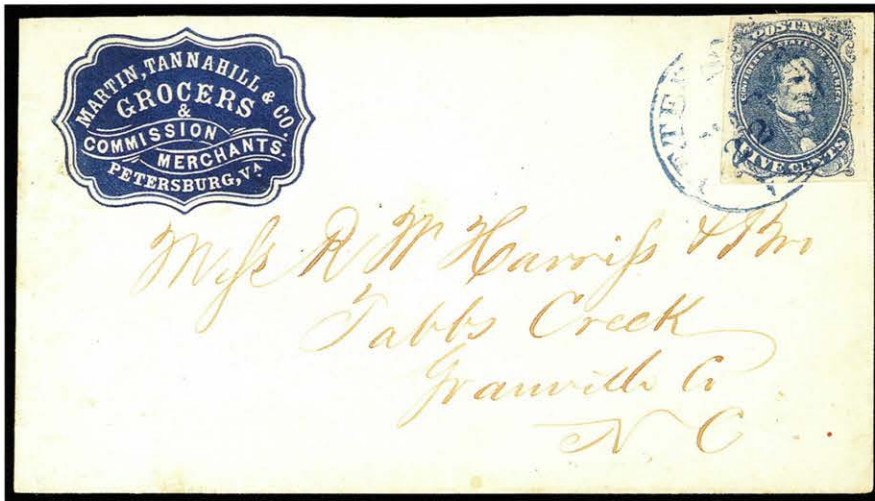 MARTIN, TANNAHILL & CO.
GROCERS
&
COMMISSION
MERCHANTS.
PETERSBURG, VA
POSTAGE
CONFEDERATE STATES OF AMERICA
FIVE CENTS
Messrs R W Harriss & Bro
Tabbs Creek
Granville Co
N C